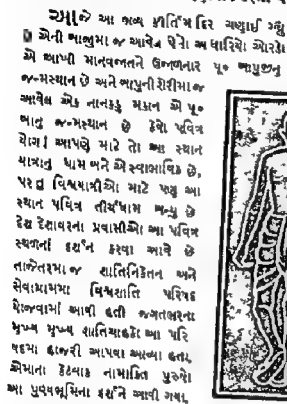 આજે આ ભવ્ય કીર્તિમંદિર ચણાઈ રહ્યું
એની બાજુમાં જ આવેલ પેલો અંધારિયો ઓરડો
એ આખી માનવજાતને ઉજાળનાર પૂ૦ બાપુજીનું
જન્મસ્થાન છે અને બાપુની શેરીમાં જ
આવેલ એક નાનકડું મકાન એ પૂ૦
બાનું જન્મસ્થાન છે કેવો પવિત્ર
યોગ! આપણે માટે તો આ સ્થાન
યાત્રાનું ધામ બને એ સ્વાભાવિક છે,
પરંતુ વિશ્વયાત્રીઓ માટે પણ આ
સ્થાન પવિત્ર તીર્થધામ બન્યું છે
દેશ દેશાવરના પ્રવાસીઓ આ પવિત્ર
સ્થળનાં દર્શન કરવા આવે છે
તાજેતરમાં જ શાંતિનિકેતન અને
સેવાગ્રામમાં વિશ્વશાંતિ પરિષદ
યોજવામાં આવી હતી જગતભરના
મુખ્ય મુખ્ય શાંતિચાહકો આ પરિ
ષદમાં હાજરી આપવા આવ્યા હતા.
એમાંના કેટલાક નામાંકિત પુરુષો
આ પુણ્યભૂમિના દર્શને આવી ગયા.